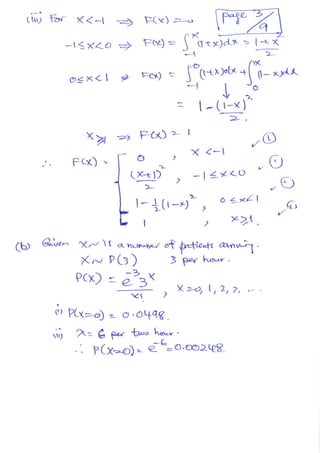 page 3/9
(iii) For x<-1 ⇒ F(x) = 0
-1≤x<0 ⇒ F(x) = ∫_{-1}^{x} (1+x)dx =
0≤x<1 ⇒ F(x) = ∫_{-1}^{0} (1+x)dx + ∫_{0}^{x} (1-x)dx
= 1 - (1-x)²/2.
x≥1 ⇒ F(x) = 1
∴ F(x) = { 0 , x<-1 ✓①
(x+1)²/2 , -1≤x<0 ✓①
1 - ½(1-x)² , 0≤x<1 ✓①
1 , x≥1. ✓①
(b) Given X~ is a number of patients arriving.
X ~ P(3) 3 per hour.
P(x) = e^{-3} 3^x / x! , x=0, 1, 2, 3, ...
(i) P(x=0) = 0.0498.
(ii) λ = 6 per two hour.
∴ P(x=0) = e^{-6} = 0.00248.